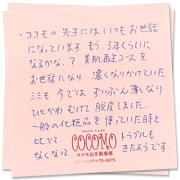 ・ココモの先生にはいつもお世話
になっています もう、3年くらいに
なるかな。? 美肌再生コースを
お世話になり 濃くなりかけていた
シミも今では ずいぶん薄くなり
ひとかわむけて 脱皮しました。
一般の化粧品を使っていた時と
比べて、 トラブルも
なくなって きたようです。
COCOMO
ココモ山手俱楽部